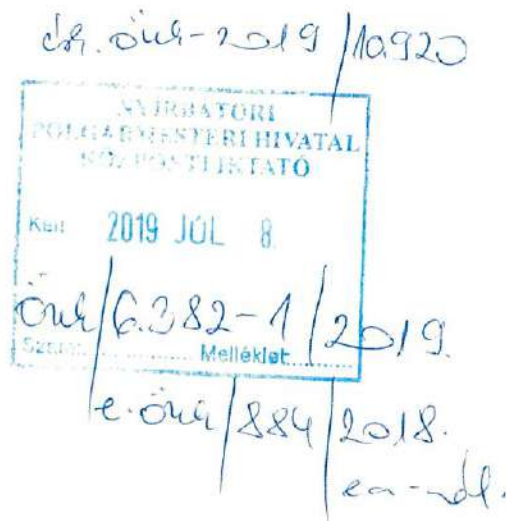 érk. önk-2019/10.920
NYÍRBÁTORI
POLGÁRMESTERI HIVATAL
KÖZPONTI IKTATÓ
Kelt: 2019 JÚL 8.
Önk/6.382-1/2019.
Szám: ............ Melléklet:............
e. önk/884/2018.